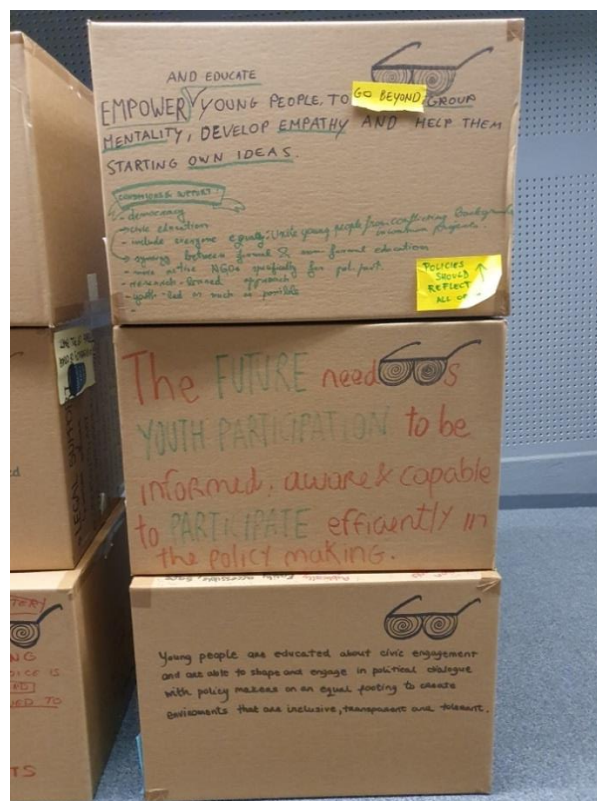 AND EDUCATE
EMPOWER YOUNG PEOPLE, TO GO BEYOND GROUP
MENTALITY, DEVELOP EMPATHY AND HELP THEM
STARTING OWN IDEAS.
- democracy
- civic education
- include everyone equally: Unite young people from conflicting backgrounds
in common projects.
- synergy between formal & non formal education
- more active NGOs specifically for pol. part.
- research-based approach
- youth-led as much as possible
-
POLICIES
SHOULD
REFLECT
ALL OF
The FUTURE needs
YOUTH PARTICIPATION to be
informed, aware & capable
to PARTICIPATE efficiently in
the policy making.
Young people are educated about civic engagement
and are able to shape and engage in political dialogue
with policy makers on an equal footing to create
enviroments that are inclusive, transparent and tolerant.
NG
OICE IS
TO
TS